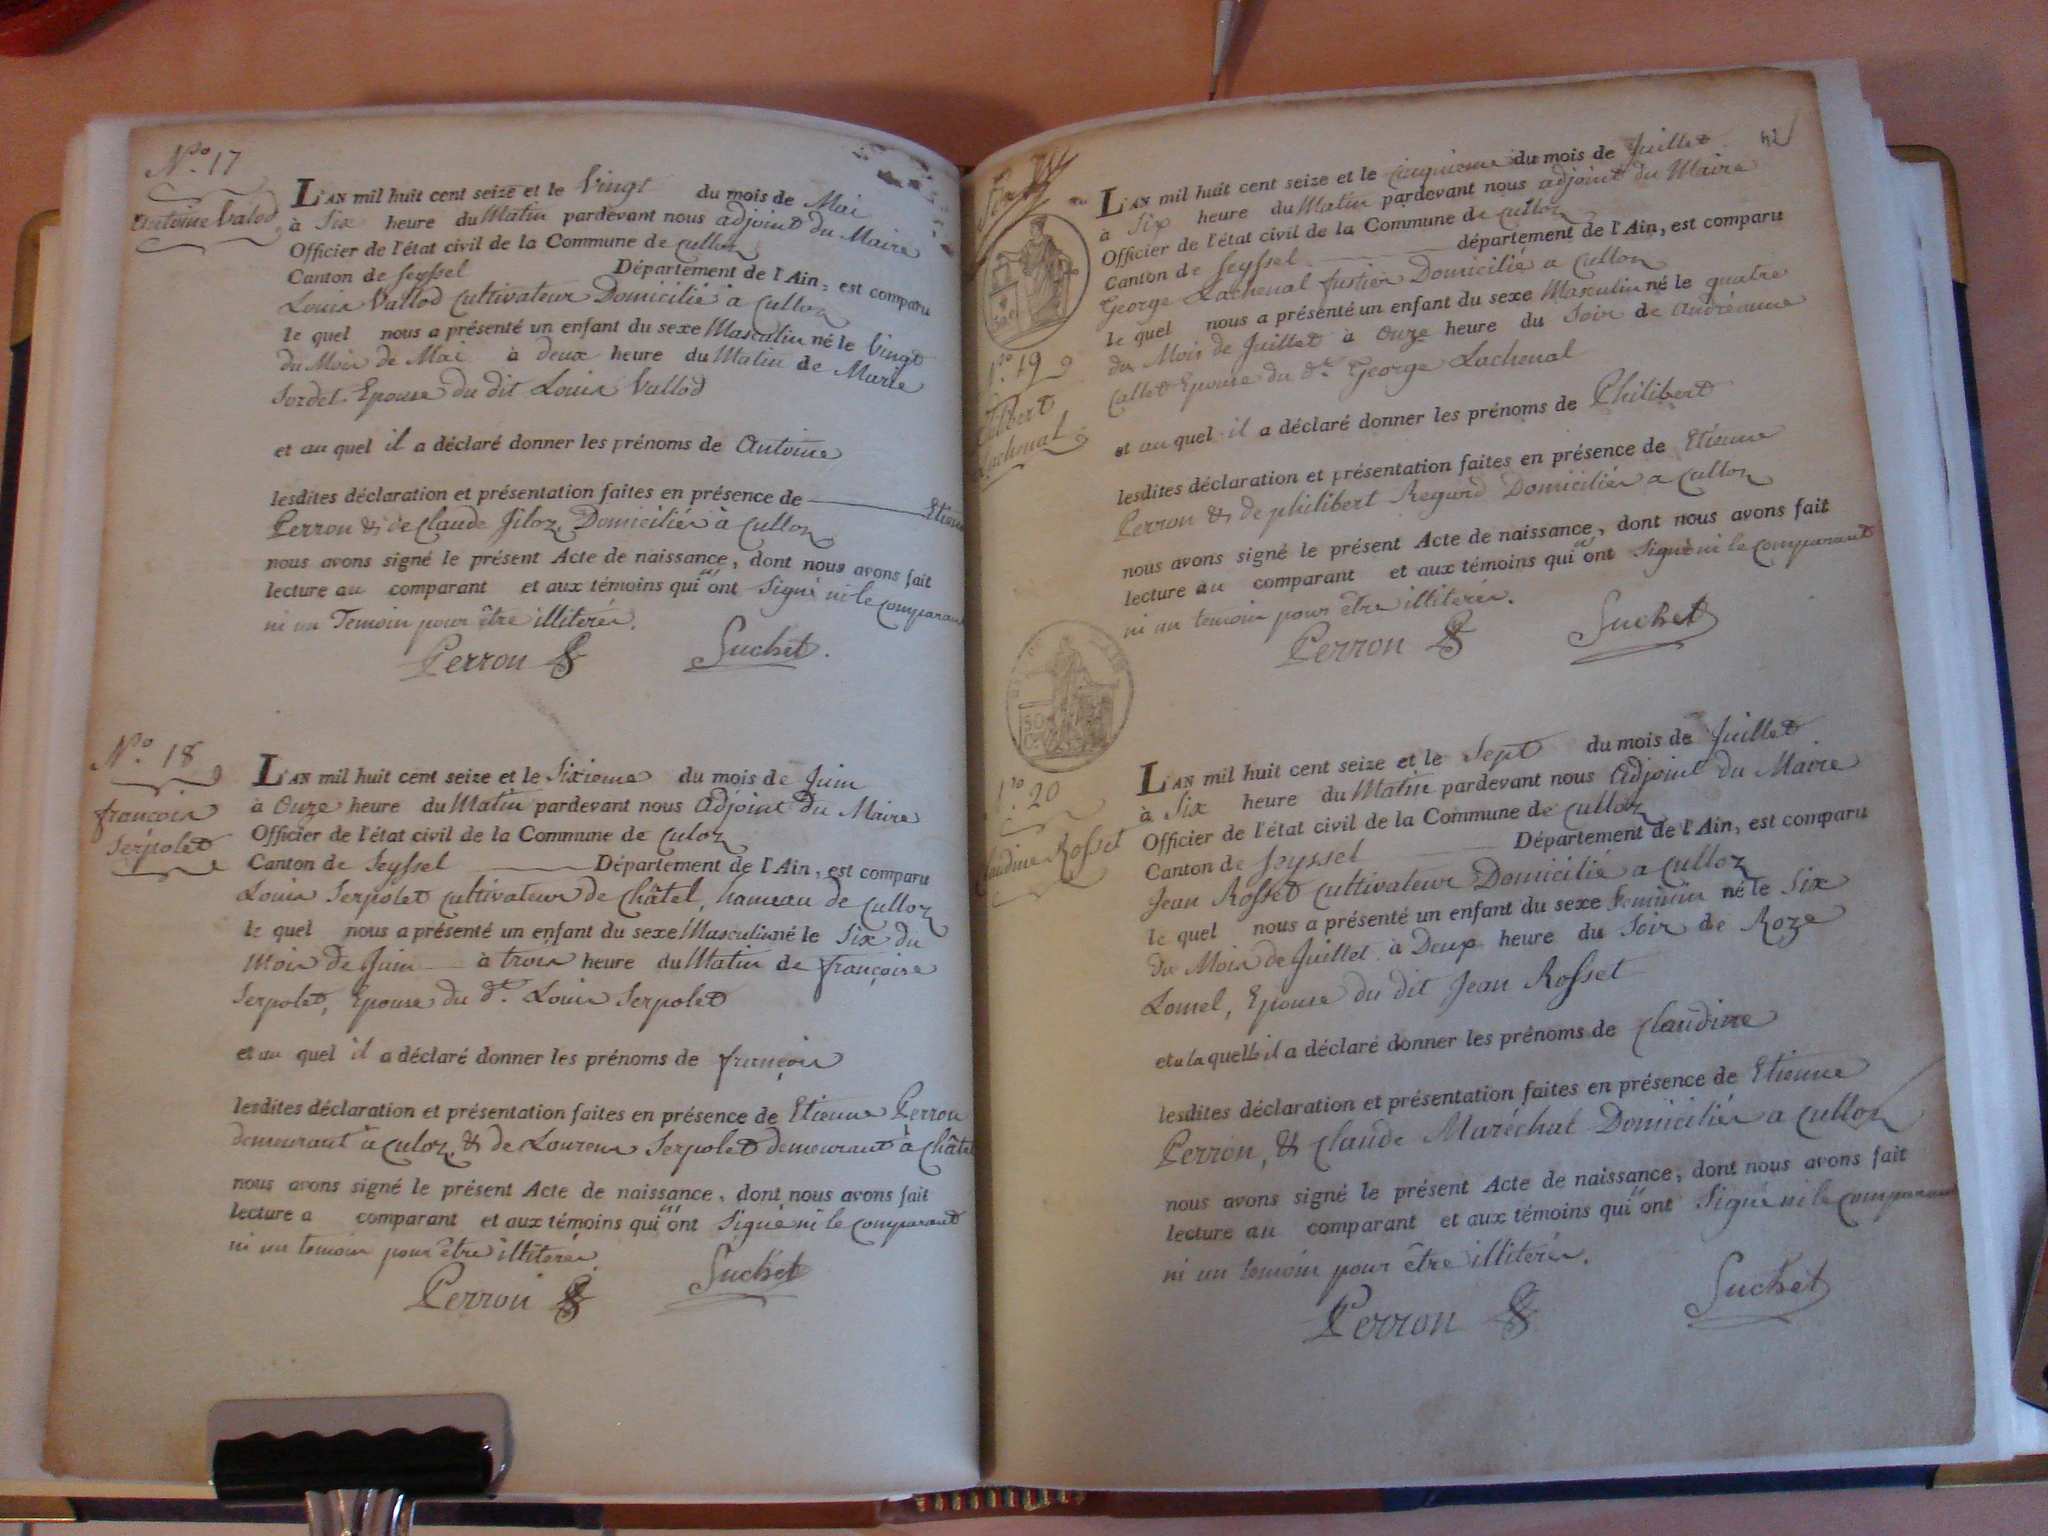 N.o 17
Antoine Valod
L'AN mil huit cent seize et le Vingt du mois de Mai
à Six heure du Matin pardevant nous adjoint du Maire
Officier de l'état civil de la Commune de Culloz
Canton de Seyssel Département de l'Ain, est comparu
Louis Vallod Cultivateur Domicilié à Culloz
le quel nous a présenté un enfant du sexe Masculin né le Vingt
du Mois de Mai à deux heure du Matin de Marie
Sordet Epouse du dit Louis Vallod
et au quel il a déclaré donner les prénoms de Antoine
lesdites déclaration et présentation faites en présence de Etienne
Perron & de Claude Jiloz Domiciliés à Culloz
nous avons signé le présent Acte de naissance, dont nous avons fait
lecture au comparant et aux témoins qui n'ont Signé ni le comparant
ni un Temoin pour être illiterés.
Perron Suchet.
N.o 18
françois
Serpolet
L'AN mil huit cent seize et le Sixieme du mois de Juin
à Onze heure du Matin pardevant nous adjoint du Maire
Officier de l'état civil de la Commune de Culoz
Canton de Seyssel Département de l'Ain, est comparu
Louis Serpolet cultivateur de Châtel, hameau de Culloz
le quel nous a présenté un enfant du sexe Masculin né le Six du
Mois de Juin à trois heure du Matin de françoise
Serpolet, Epouse du dt. Louis Serpolet
et au quel il a déclaré donner les prénoms de françois
lesdites déclaration et présentation faites en présence de Etienne Perron
demeurant à Culoz & de Lourens Serpolet demeurant à Châtel
nous avons signé le présent Acte de naissance, dont nous avons fait
lecture a comparant et aux témoins qui n'ont Signé ni le comparant
ni un temoin pour être illiterés
Perron Suchet
42
N.o 19
Filibert
Lachenal
L'AN mil huit cent seize et le Cinquieme du mois de Juillet
à Six heure du Matin pardevant nous adjoint du Maire
Officier de l'état civil de la Commune de Culloz
Canton de Seyssel département de l'Ain, est comparu
George Lachenal fustier Domicilié a Culloz
le quel nous a présenté un enfant du sexe Masculin né le quatre
du Mois de Juillet à Onze heure du Soir de Andréanne
Callet Epouse du dt. George Lachenal
et au quel il a déclaré donner les prénoms de Philibert
lesdites déclaration et présentation faites en présence de Etienne
Perron & de philibert Regard Domiciliés a Culloz
nous avons signé le présent Acte de naissance, dont nous avons fait
lecture au comparant et aux témoins qui n'ont Signé ni le comparant
ni un temoin pour être illiterés.
Perron Suchet
N.o 20
Claudine Rosset
L'AN mil huit cent seize et le Sept du mois de Juillet
à Six heure du Matin pardevant nous adjoint du Maire
Officier de l'état civil de la Commune de Culloz
Canton de Seyssel Département de l'Ain, est comparu
Jean Rosset Cultivateur Domicilié a Culloz
le quel nous a présenté un enfant du sexe Feminin né le Six
du Mois de Juillet à Deux heure du Soir de Roze
Lomel, Epouse du dit Jean Rosset
et a la quelle il a déclaré donner les prénoms de Claudine
lesdites déclaration et présentation faites en présence de Etienne
Perron, & Claude Maréchal Domiciliés a Culloz
nous avons signé le présent Acte de naissance, dont nous avons fait
lecture au comparant et aux témoins qui n'ont Signé ni le comparant
ni un temoin pour être illiterés.
Perron Suchet